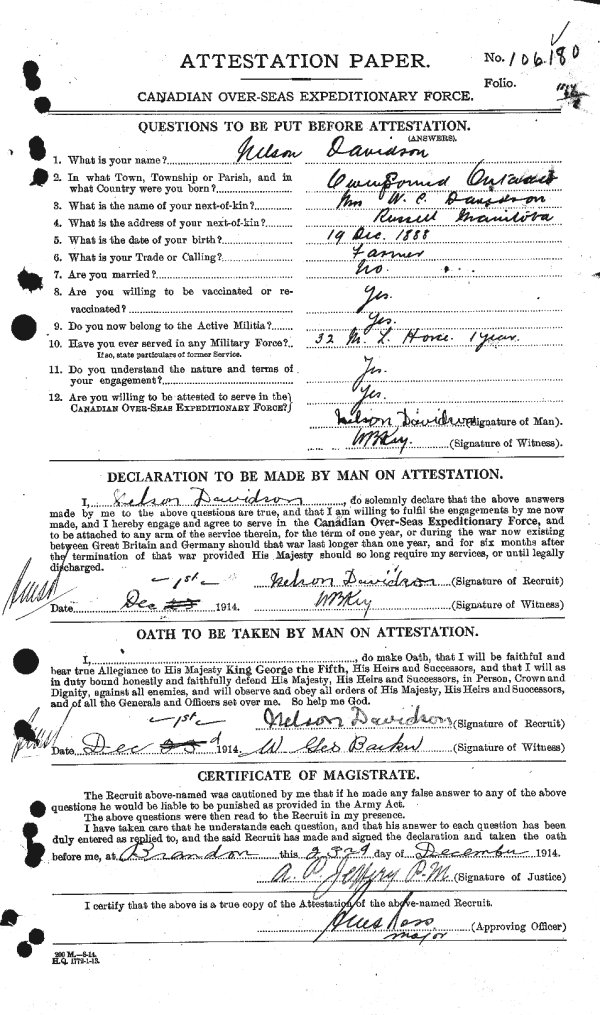 ATTESTATION PAPER.
No. 106180
Folio.
CANADIAN OVER-SEAS EXPEDITIONARY FORCE.
QUESTIONS TO BE PUT BEFORE ATTESTATION.
(ANSWERS).
1. What is your name? Nelson Davidson
2. In what Town, Township or Parish, and in
what Country were you born? Owen Sound Ontario
3. What is the name of your next-of-kin? Mrs W. C. Davidson
4. What is the address of your next-of-kin? Russell Manitoba
5. What is the date of your birth? 19 Dec. 1888
6. What is your Trade or Calling? Farmer
7. Are you married? No.
8. Are you willing to be vaccinated or re-
vaccinated? Yes.
9. Do you now belong to the Active Militia? Yes.
10. Have you ever served in any Military Force? 32 M. L. Horse. 1 year.
If so, state particulars of former Service.
11. Do you understand the nature and terms of
your engagement? Yes.
12. Are you willing to be attested to serve in the
CANADIAN OVER-SEAS EXPEDITIONARY FORCE? Yes.
Nelson Davidson (Signature of Man).
(Signature of Witness).
DECLARATION TO BE MADE BY MAN ON ATTESTATION.
I, Nelson Davidson, do solemnly declare that the above answers
made by me to the above questions are true, and that I am willing to fulfil the engagements by me now
made, and I hereby engage and agree to serve in the Canadian Over-Seas Expeditionary Force, and
to be attached to any arm of the service therein, for the term of one year, or during the war now existing
between Great Britain and Germany should that war last longer than one year, and for six months after
the termination of that war provided His Majesty should so require my services, or until legally
discharged.
-1st- Nelson Davidson (Signature of Recruit)
Date Dec 1914. (Signature of Witness)
OATH TO BE TAKEN BY MAN ON ATTESTATION.
I, do make Oath, that I will be faithful and
bear true Allegiance to His Majesty King George the Fifth, His Heirs and Successors, and that I will as
in duty bound honestly and faithfully defend His Majesty, His Heirs and Successors, in Person, Crown and
Dignity, against all enemies, and will observe and obey all orders of His Majesty, His Heirs and Successors,
and of all the Generals and Officers set over me. So help me God.
-1st- Nelson Davidson (Signature of Recruit)
Date Dec 23d 1914. W. Geo Barker (Signature of Witness)
CERTIFICATE OF MAGISTRATE.
The Recruit above-named was cautioned by me that if he made any false answer to any of the above
questions he would be liable to be punished as provided in the Army Act.
The above questions were then read to the Recruit in my presence.
I have taken care that he understands each question, and that his answer to each question has been
duly entered as replied to, and the said Recruit has made and signed the declaration and taken the oath
before me, at Brandon this 23rd day of December 1914.
A. P. Jeffery P.M. (Signature of Justice)
I certify that the above is a true copy of the Attestation of the above-named Recruit.
Ross (Approving Officer)
Major
200 M.-8-14.
H.Q. 1772-1-13.